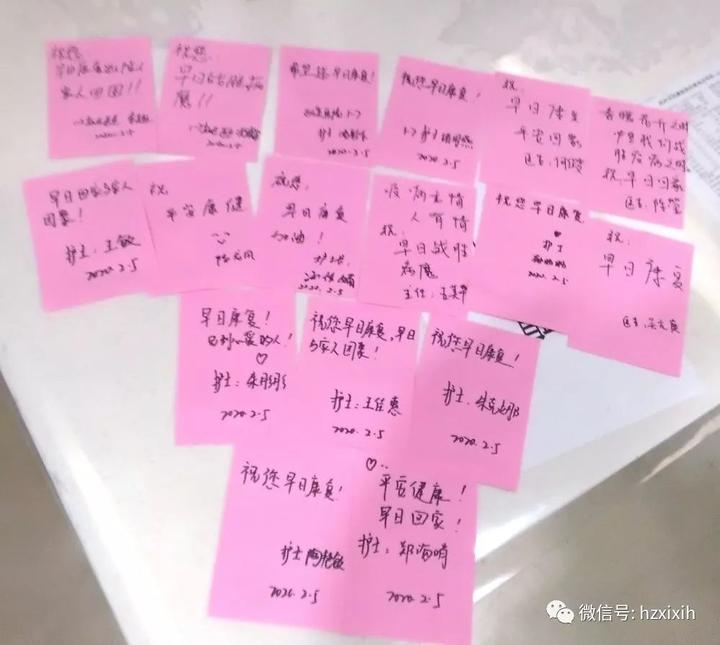 祝您:
早日康复
家人团圆!!
2020.2.5
祝您:
早日战胜病
魔!!
2020.2.5
希望您早日康复!
护士
2020.2.5
祝您早日康复!
护士
2020.2.5
祝:
早日康复
平安回家
医生:
春暖花开之时
便是我们战
胜疫病之时
祝早日回家
医生:
早日回家与家人
团聚!
护士:王敏
2020.2.5
祝:
平安康健
祝您:
早日康复
加油!
护士长:
2020.2.5
疫病无情
人有情
祝:
早日战胜
病魔
主任:
祝您早日康复
护士
2020.2.5
祝:
早日康复
医生:
早日康复!
见到心爱的人!
护士:朱彤彤
2020.2.5
祝您早日康复,早日
与家人团聚!
护士:王佳惠
2020.2.5
祝您早日康复!
护士:朱
2020.2.5
祝您早日康复!
护士 陶
2020.2.5
平安健康!
早日回家!
护士:郑海
2020.2.5
微信号: hzxixih